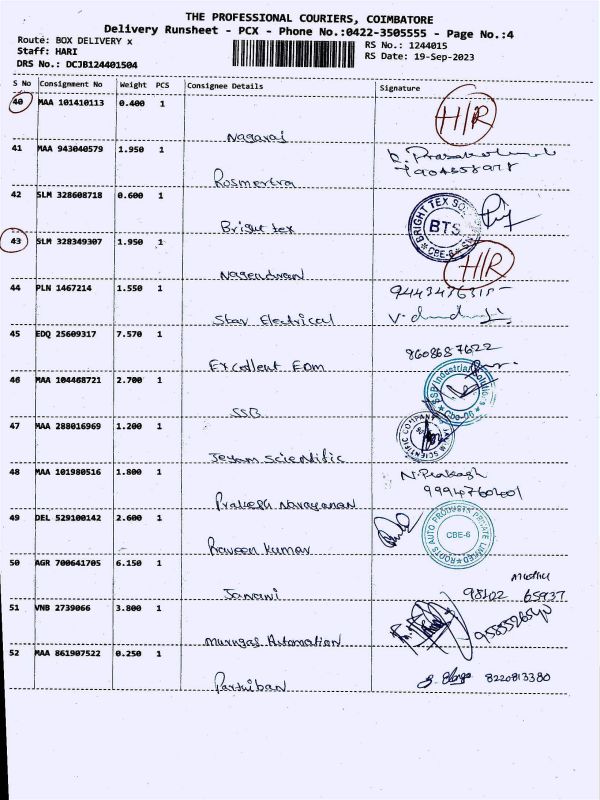 THE PROFESSIONAL COURIERS, COIMBATORE
Delivery Runsheet - PCX - Phone No.:0422-3505555 - Page No.:4
Route: BOX DELIVERY x
RS No.: 1244015
Staff: HARI
RS Date: 19-Sep-2023
DRS No.: DCJB124401504
S No Consignment No Weight PCS Consignee Details Signature
40 MAA 101410113 0.400 1
H/R
Nagaraj
41 MAA 943040579 1.950 1
Rosmertra
42 SLM 328608718 0.600 1
BRIGHT TEX
BTS
CBE-6
Bright tex
43 SLM 328349307 1.950 1
H/R
Nagendran
44 PLN 1467214 1.550 1
Star Electrical
45 EDQ 25609317 7.570 1
8608687622
Excellent Edm
46 MAA 104468721 2.700 1
SSB Industrial
SSB
47 MAA 288016969 1.200 1
Jeyam Scientific
48 MAA 101980516 1.800 1
N. Prakash
Prakash Narayanan
49 DEL 529100142 2.600 1
ROOTS AUTO PRODUCTS PRIVATE LIMITED
CBE-6
Praveen kumar
50 AGR 700641705 6.150 1
98422 65937
Janani
51 VNB 2739066 3.800 1
Murugas Automation
52 MAA 861907522 0.250 1
8220813380
Parthiban